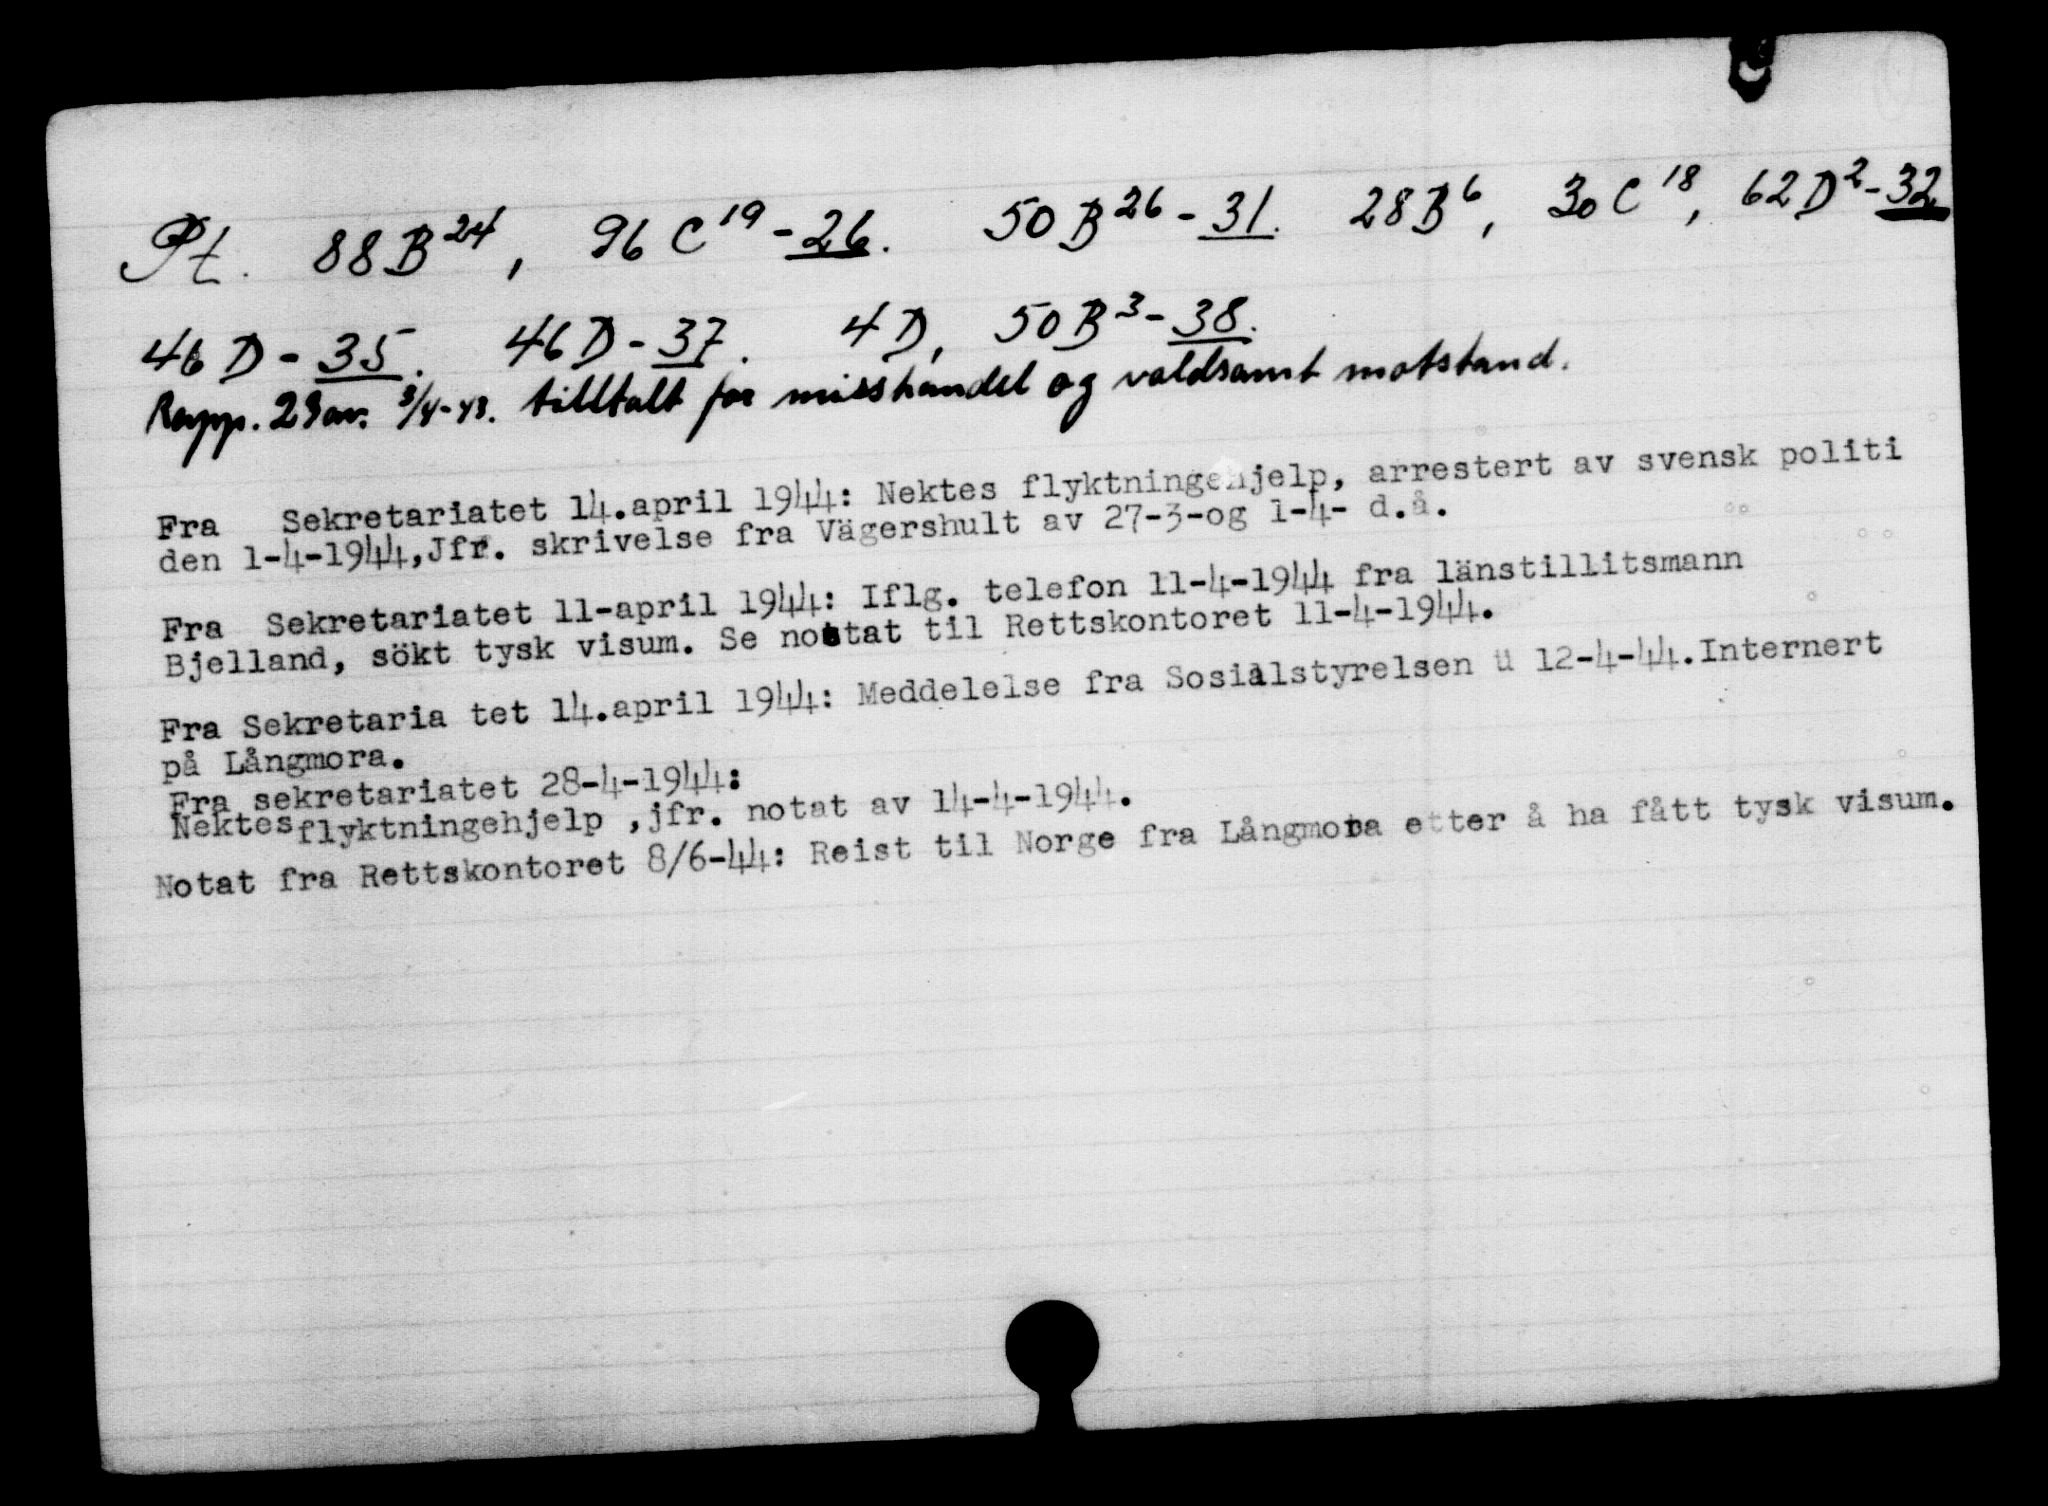 Pt. 88B24, 96C19-26. 50B26-31. 28B6, 30C18, 62D2-32
46D-35. 46D-37. 4D, 50B3-38.
Rapp. 23 av. 3/4-43. tilltalt for misshandel og valdsamt motstand.
Fra Sekretariatet 14.april 1944: Nektes flyktningehjelp, arrestert av svensk politi
den 1-4-1944,Jfr. skrivelse fra Vägershult av 27-3-og 1-4- d.å.
Fra Sekretariatet 11-april 1944: Iflg. telefon 11-4-1944 fra länstillitsmann
Bjelland, sökt tysk visum. Se notat til Rettskontoret 11-4-1944.
Fra Sekretaria tet 14.april 1944: Meddelelse fra Sosialstyrelsen U 12-4-44.Internert
på Långmora.
Fra sekretariatet 28-4-1944:
Nektes flyktningehjelp ,jfr. notat av 14-4-1944.
Notat fra Rettskontoret 8/6-44: Reist til Norge fra Långmora etter å ha fått tysk visum.